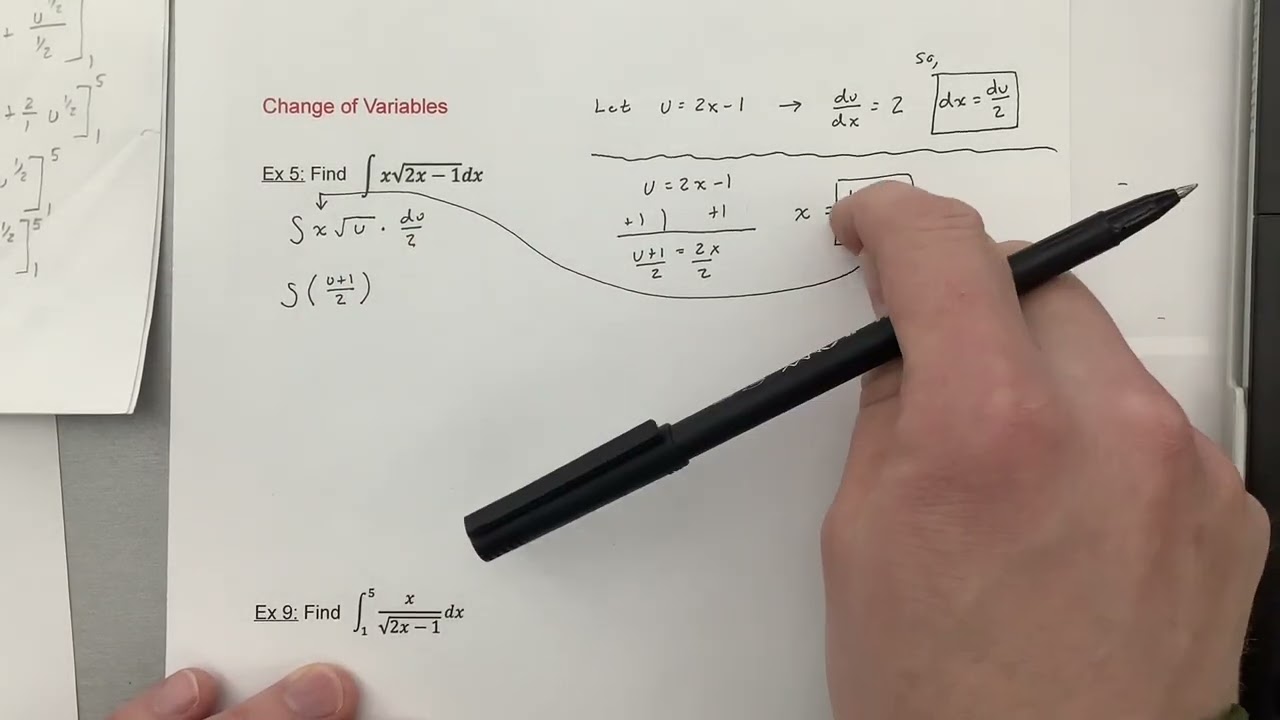 + u^1/2 / 1/2 ]_1
+ 2/1 u^1/2 ]^5_1
^1/2 ]^5_1
^1/2 ]^5_1
Change of Variables
Let u = 2x - 1 → du/dx = 2
so,
dx = du/2
Ex 5: Find ∫ x√(2x − 1) dx
∫ x √u · du/2
∫ ( u+1/2 )
u = 2x - 1
+1 ) +1
u+1/2 = 2x/2
x =
Ex 9: Find ∫_1^5 x/√(2x − 1) dx